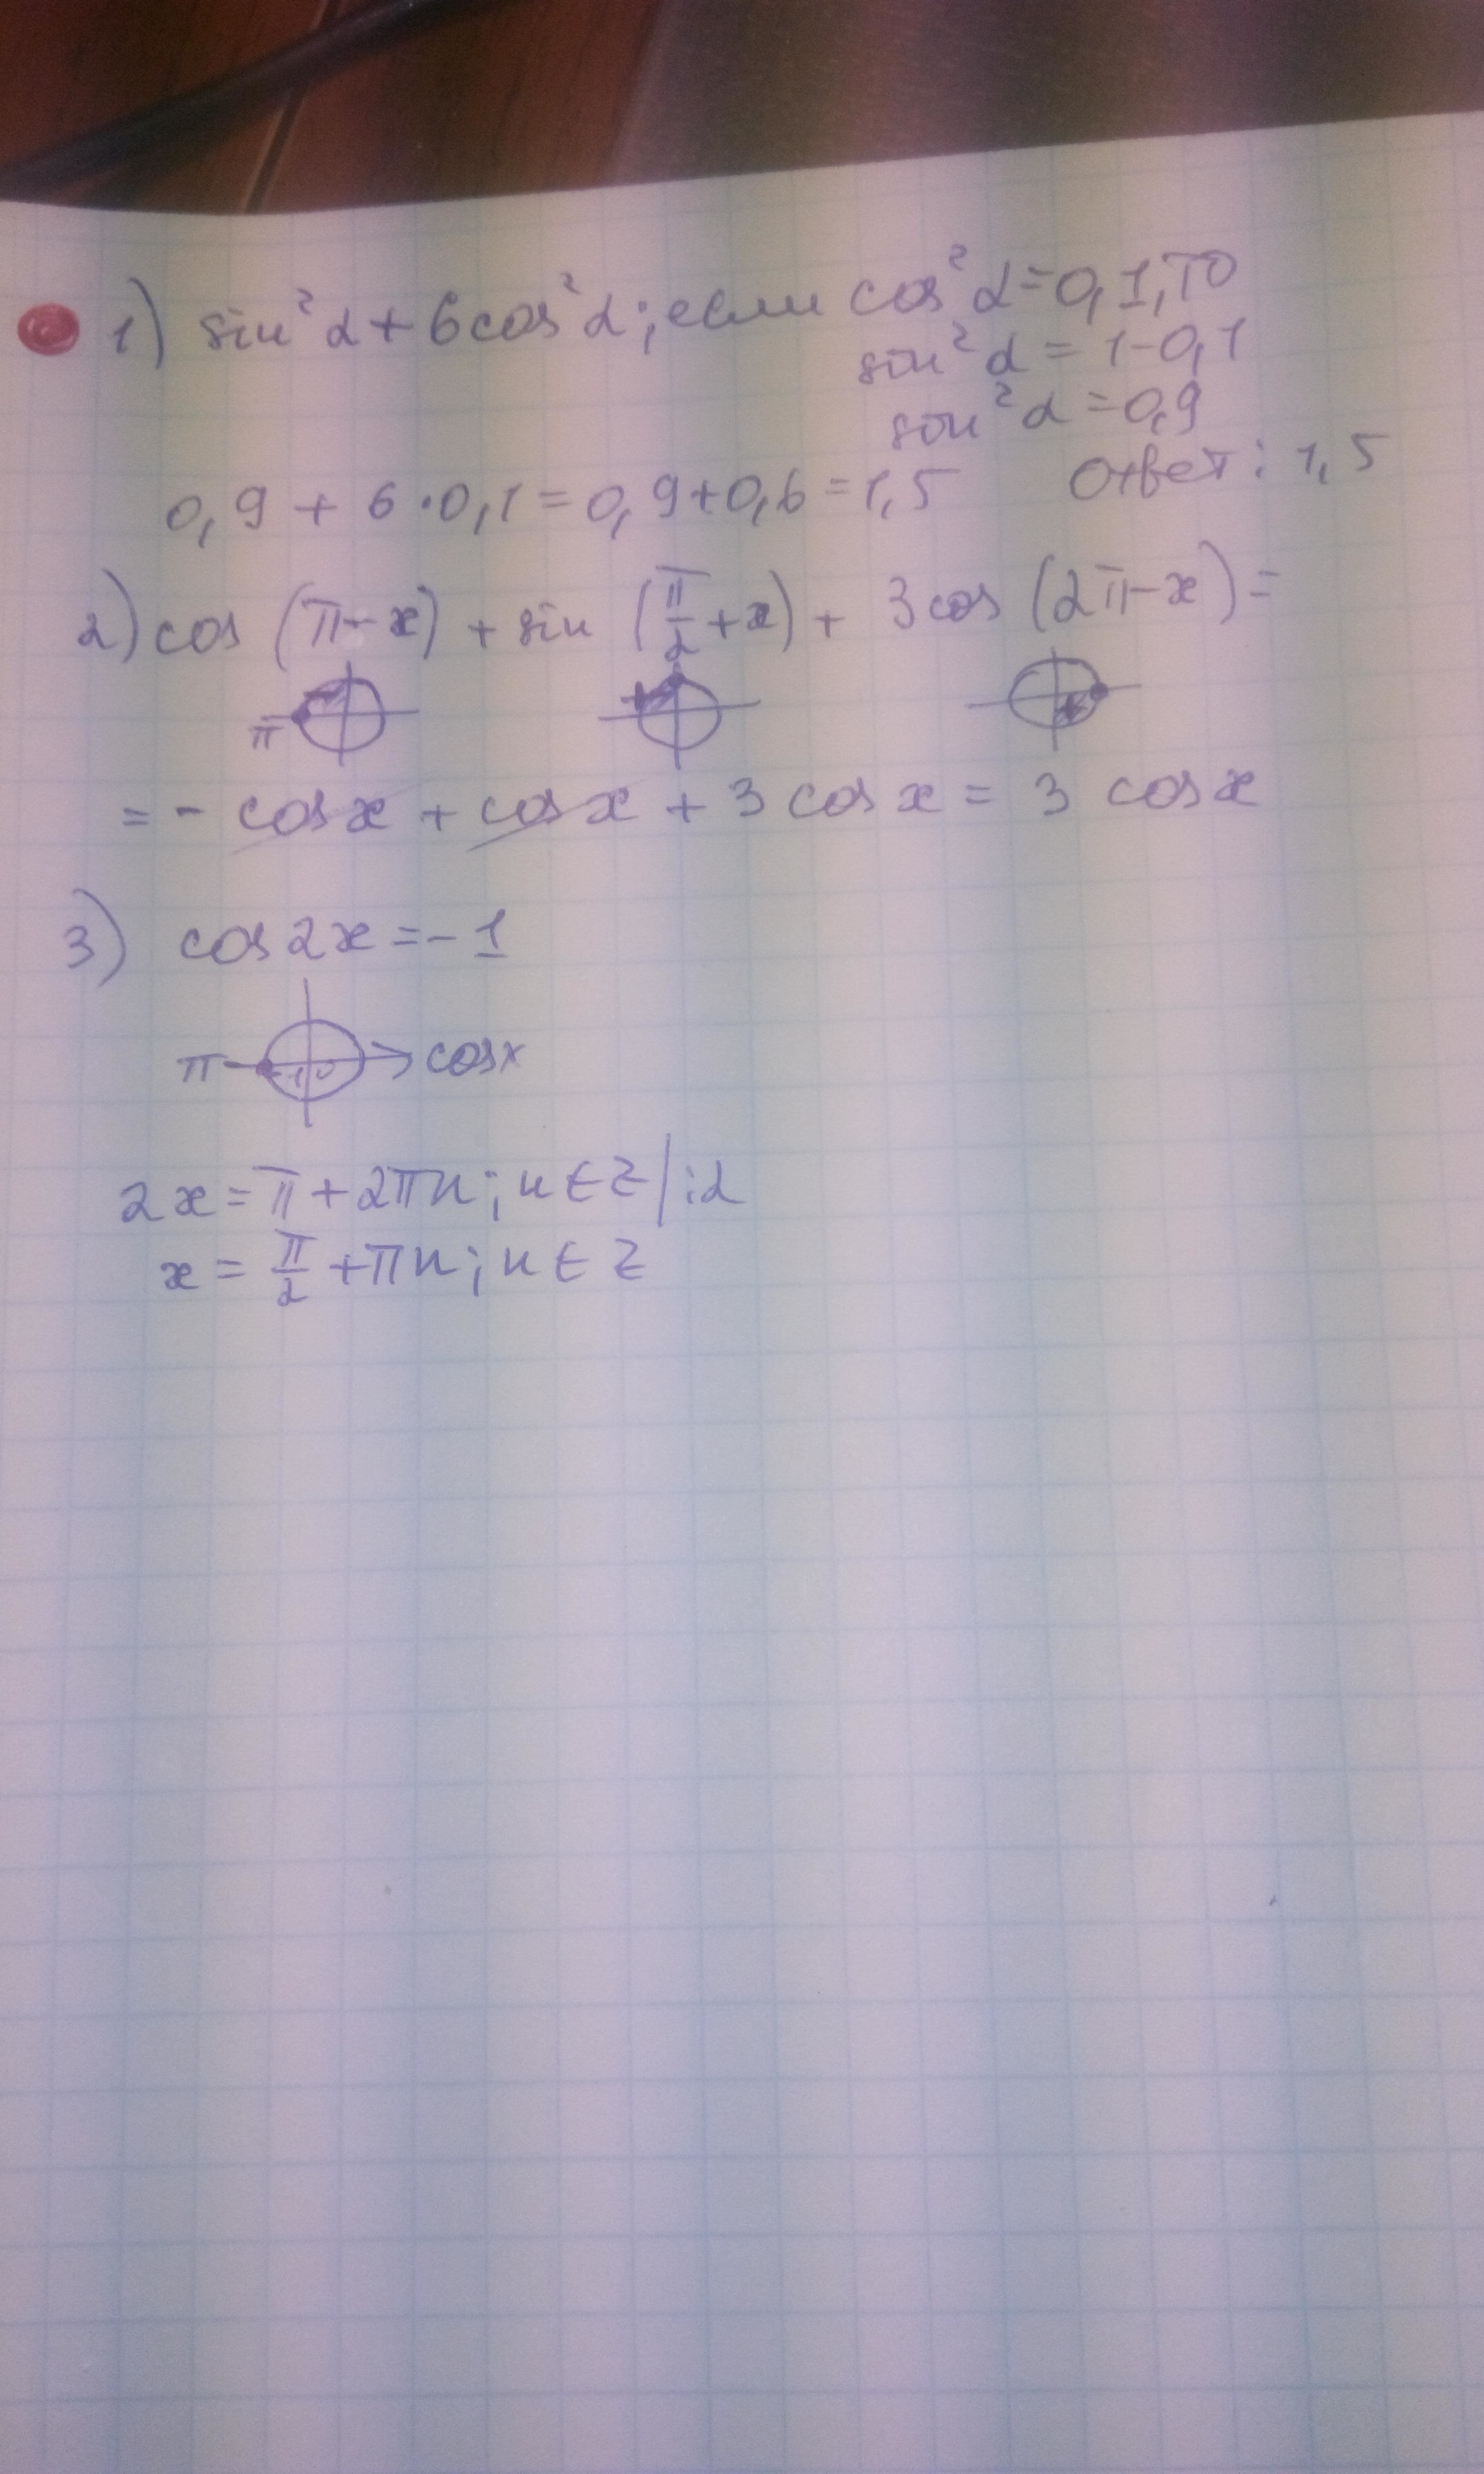 1) sin²α + 6cos²α; если cos²α = 0,1, то
sin²α = 1-0,1
sin²α = 0,9
0,9 + 6·0,1 = 0,9+0,6 = 1,5
Ответ: 1,5
2) cos (π-x) + sin (π/2 + x) + 3cos (2π-x) =
π
= - cosx + cosx + 3 cosx = 3 cosx
3) cos2x = -1
π -1 0 cosx
2x = π + 2πn; n ∈ Z | :2
x = π/2 + πn; n ∈ Z